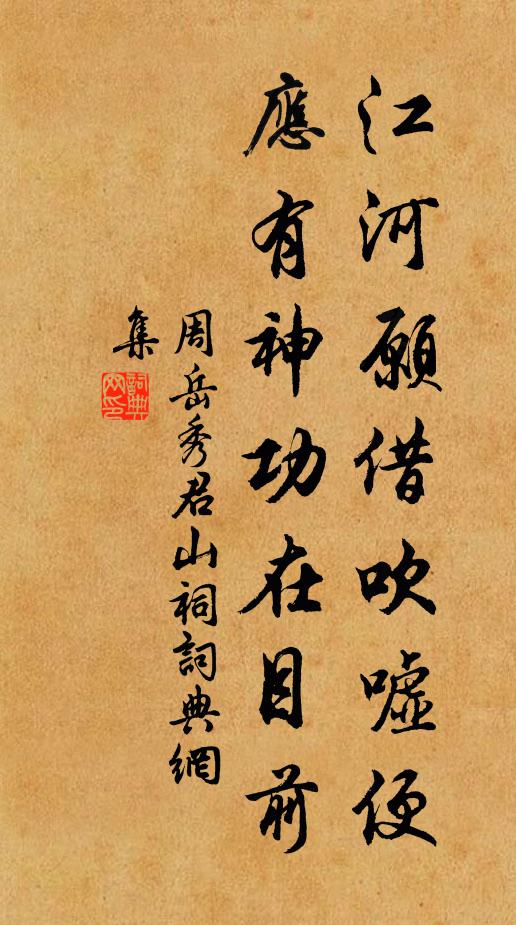 江河願借吹噓便
應有神功在目前
周岳秀君山祠詞典網
集
詞典
网印